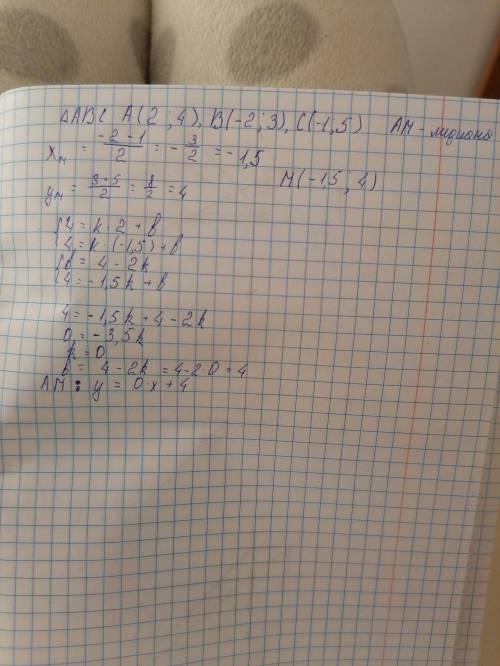 ΔABC A(2 ; 4), B(-2 ; 3), C(-1, 5) AM - медиана
x_м = \frac{-2-1}{2} = -\frac{3}{2} = -1,5
y_м = \frac{3+5}{2} = \frac{8}{2} = 4 M(-1,5 ; 4)
{4 = k · 2 + b
{4 = k · (-1,5) + b
{b = 4 - 2k
{4 = -1,5k + b
4 = -1,5k + 4 - 2k
0 = -3,5k
k = 0
b = 4 - 2k = 4 - 2·0 = 4
AM : y = 0·x + 4